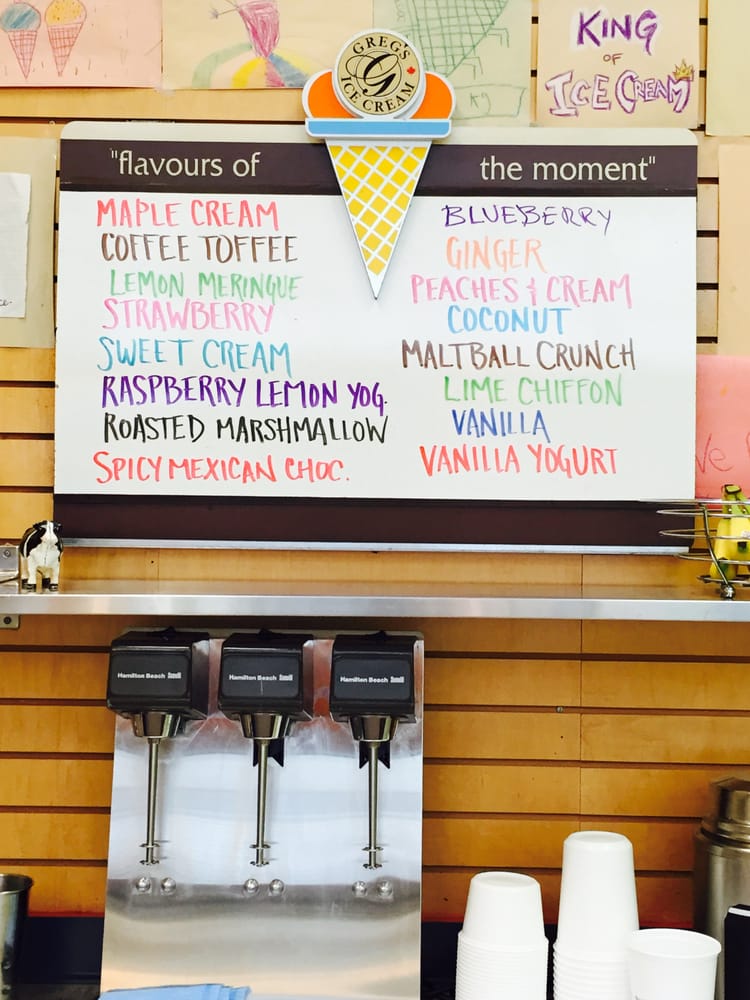 KING
OF
ICE CREAM
GREG'S
G
ICE CREAM
"flavours of the moment"
MAPLE CREAM
COFFEE TOFFEE
LEMON MERINGUE
STRAWBERRY
SWEET CREAM
RASPBERRY LEMON YOG.
ROASTED MARSHMALLOW
SPICY MEXICAN CHOC.
BLUEBERRY
GINGER
PEACHES & CREAM
COCONUT
MALTBALL CRUNCH
LIME CHIFFON
VANILLA
VANILLA YOGURT
Hamilton Beach
Hamilton Beach
Hamilton Beach